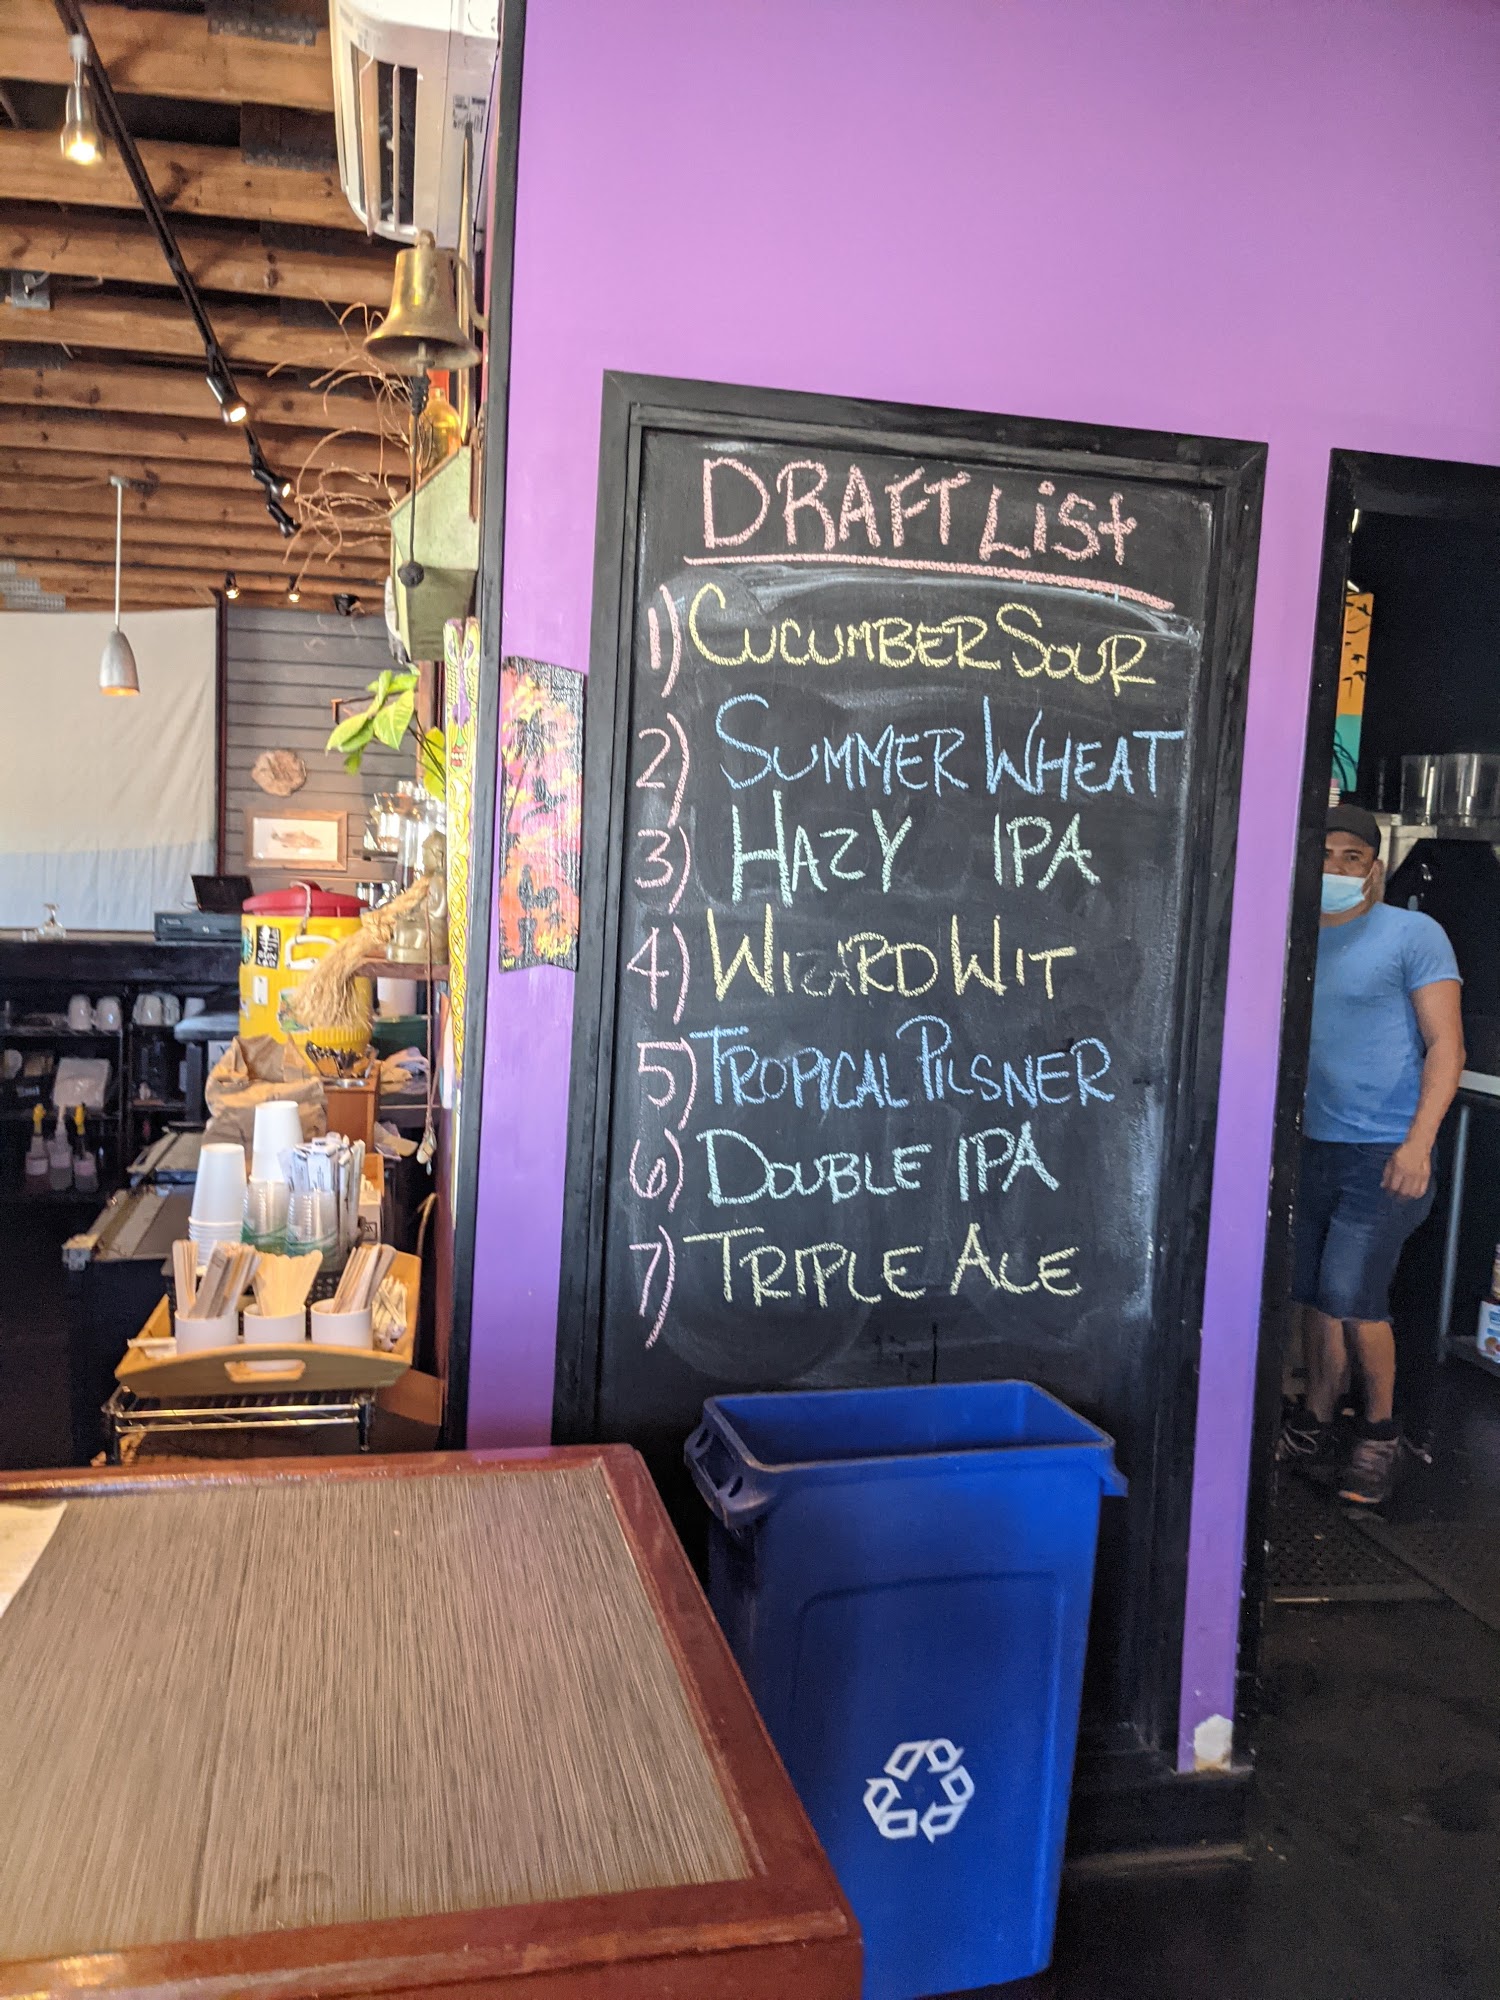 DRAFT LiSt
1) CUCUMBER SOUR
2) SUMMER WHEAT
3) HAZY IPA
4) WIZARD WIT
5) TROPICAL PILSNER
6) DOUBLE IPA
7) TRIPLE ALE